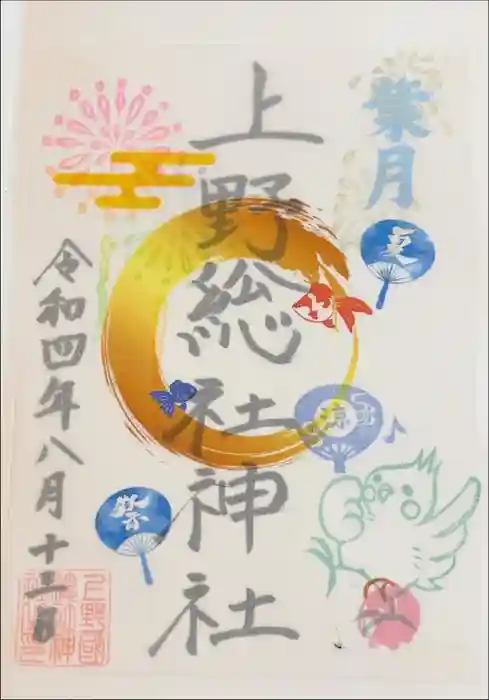 葉月
夏
上野総社神社
涼
祭
令和四年八月十三日